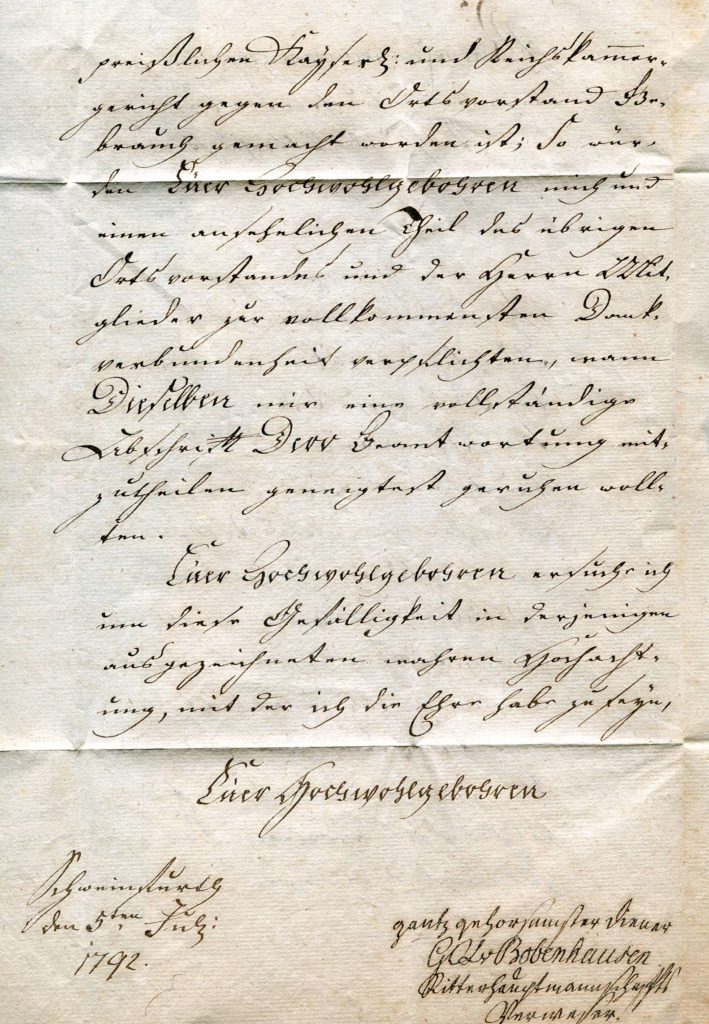 preißlichen Kayserl: und Reichskammer-
gericht gegen den Ortsvorstand Ge-
brauch gemacht worden ist; So wür-
den Euer Hochwohlgebohren mich und
einen ansehnlichen Theil des übrigen
Ortsvorstandes und der Herrn Mit-
glieder zur vollkommensten Dank-
verbundenheit verpflichten, wann
Dieselben mir eine vollständige
Abschrift Dero Beantwortung mit-
zutheilen geneigtest geruhen woll-
ten.
Euer Hochwohlgebohren ersuche ich
um diese Gefälligkeit in derjenigen
ausgezeichneten wahren Hochacht-
ung, mit der ich die Ehre habe zu seyn,
Euer Hochwohlgebohren
Schweinfurth
den 5ten Julÿ:
1792.
gantz gehorsamster Diener
v Bobenhausen
Ritterhauptmannschaffts
Verweser.